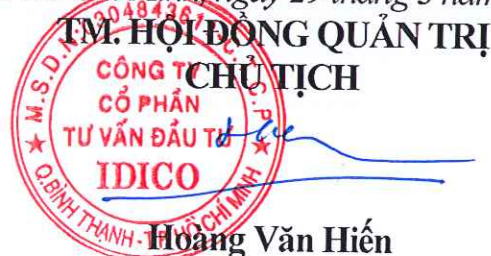 ngày 29 tháng 3 năm
TM. HỘI ĐỒNG QUẢN TRỊ
CHỦ TỊCH
CÔNG TY
CỔ PHẦN
TƯ VẤN ĐẦU TƯ
IDICO
Q.BÌNH THẠNH - T.P HỒ CHÍ MINH
Hoàng Văn Hiến